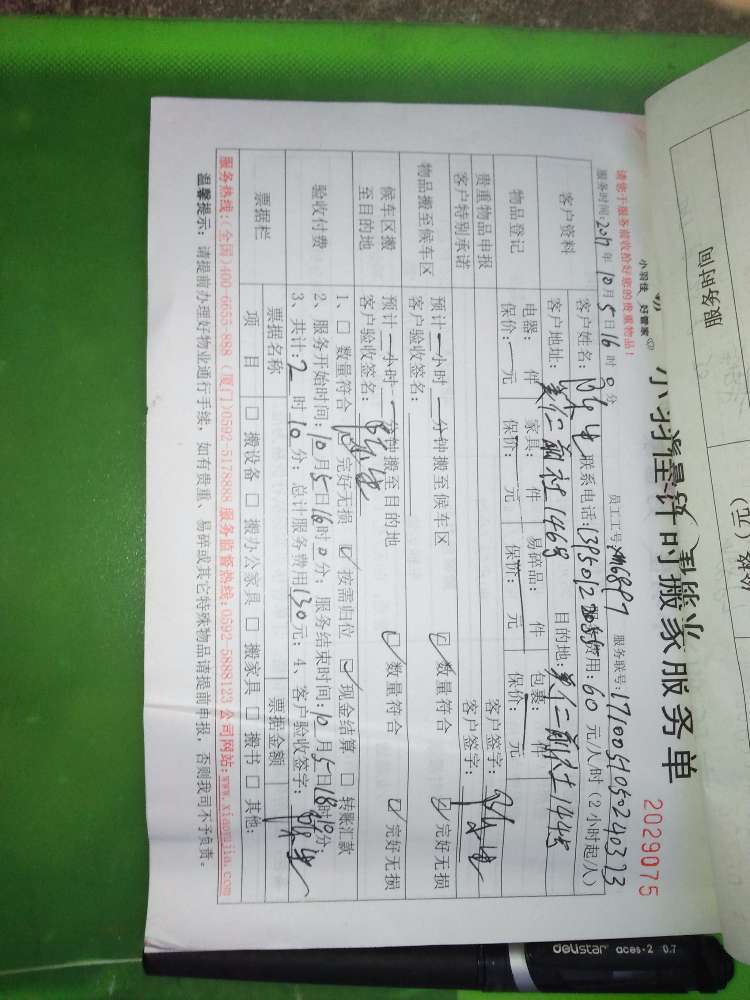 服务时间
小羽佳 好管家
小羽佳计时搬家服务单
2029075
请您于服务前收拾好您的贵重物品！
员工工号：xm6897 服务联号：
服务时间：2017年10月5日16时0分
客户资料
客户姓名： 联系电话： 费用：60元/人/时（2小时起/人）
客户地址： 目的地：
物品登记
电器： 件 家具： 件 易碎品： 件 包裹： 件
保价：一元 保价： 元 保价： 元 保价： 元
贵重物品申报 客户签字：
客户特别承诺 客户签字：
物品搬至候车区
预计一小时一分钟搬至候车区 ☑数量符合 ☑完好无损
客户验收签名：
候车区搬至目的地
预计一小时一分钟搬至目的地 ☑数量符合 ☑完好无损
客户验收签名：
验收付费
1、□ 数量符合 ☑ 完好无损 ☑ 按需归位 ☑ 现金结算 □ 转账汇款
2、服务开始时间：10月5日16时0分；服务结束时间：10月5日18时10分；
3、共计：2时10分；总计服务费用130元；4、客户验收签字：
票据栏
票据名称 票据金额
项 目 □ 搬设备 □ 搬办公家具 □ 搬家具 □ 搬书 □ 其他：
服务热线：(全国)400-6655-888 (厦门)0592-5178888 服务监督热线：0592-5888123 公司网站：www.xiaomjia.com
温馨提示：请提前办理好物业通行手续，如有贵重、易碎或其它特殊物品请提前申报，否则我司不予负责。
delistar aces-2 0.7